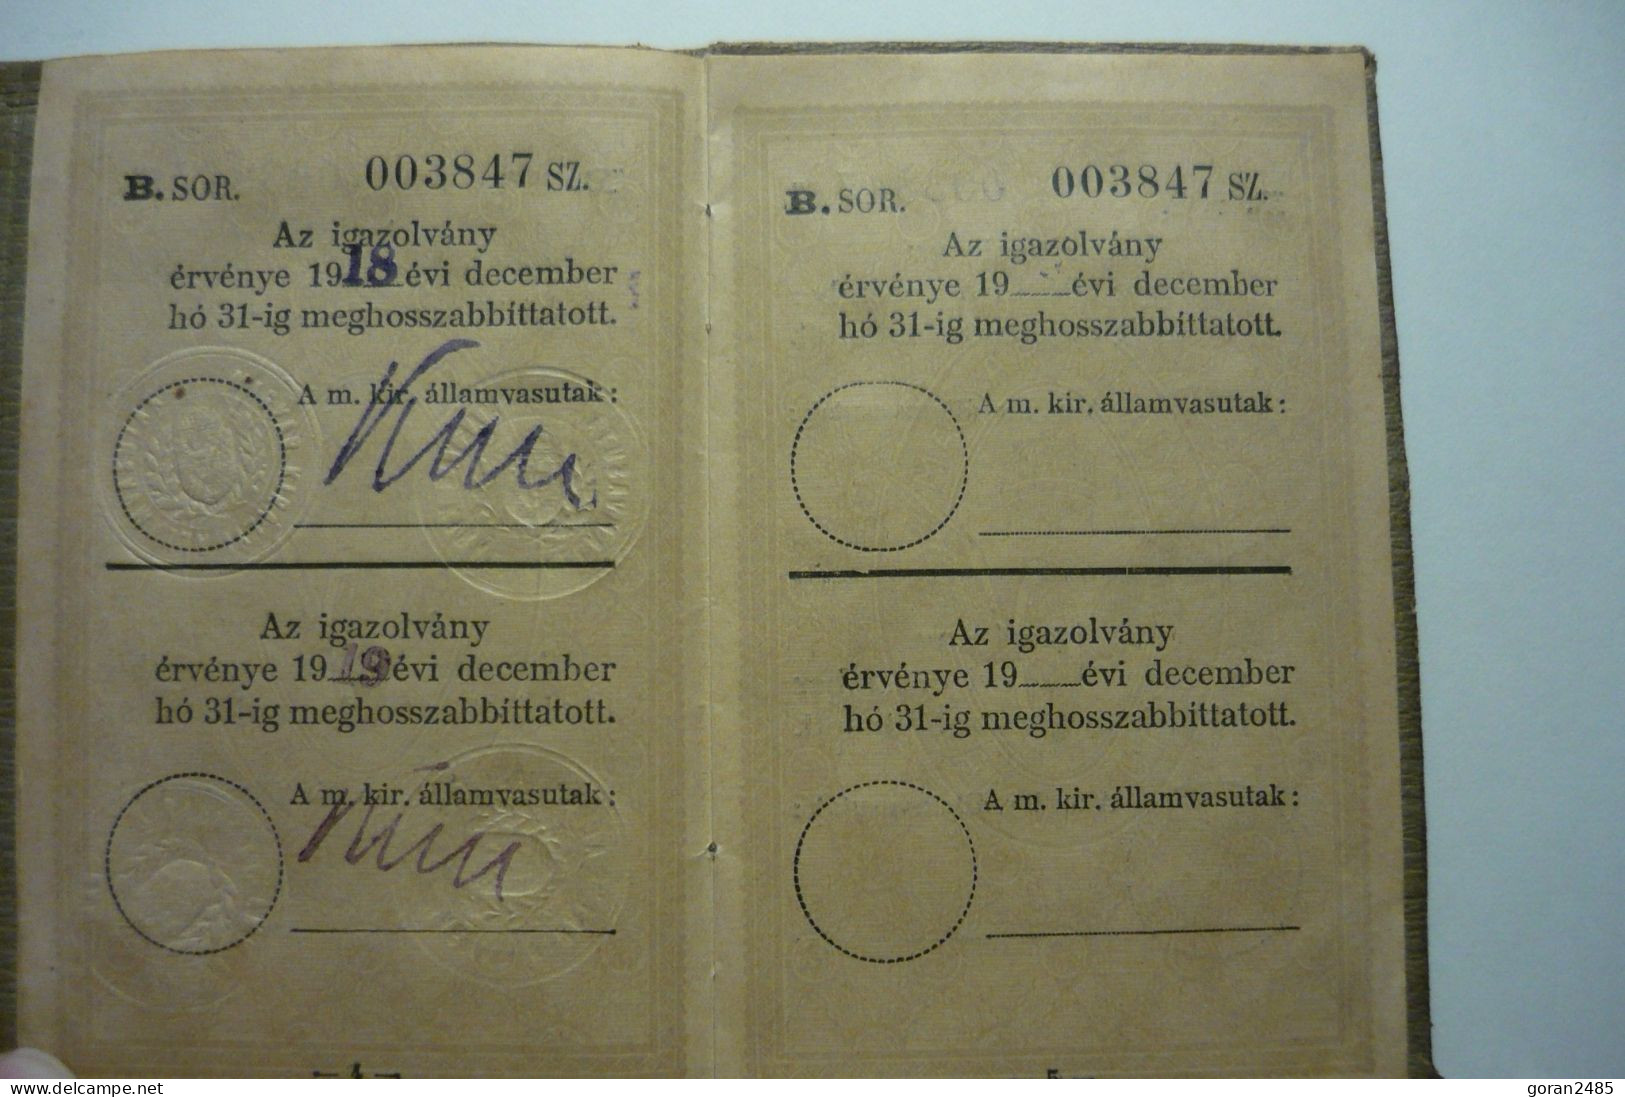 B. SOR. 003847 SZ.
Az igazolvány
érvénye 1918 évi december
hó 31-ig meghosszabbíttatott.
A m. kir. államvasutak:
Az igazolvány
érvénye 1919 évi december
hó 31-ig meghosszabbíttatott.
A m. kir. államvasutak:
— 4 —
B. SOR. 003847 SZ.
Az igazolvány
érvénye 19___évi december
hó 31-ig meghosszabbíttatott.
A m. kir. államvasutak:
Az igazolvány
érvénye 19___évi december
hó 31-ig meghosszabbíttatott.
A m. kir. államvasutak:
— 5 —
http://www.delcampe.net
goran2485